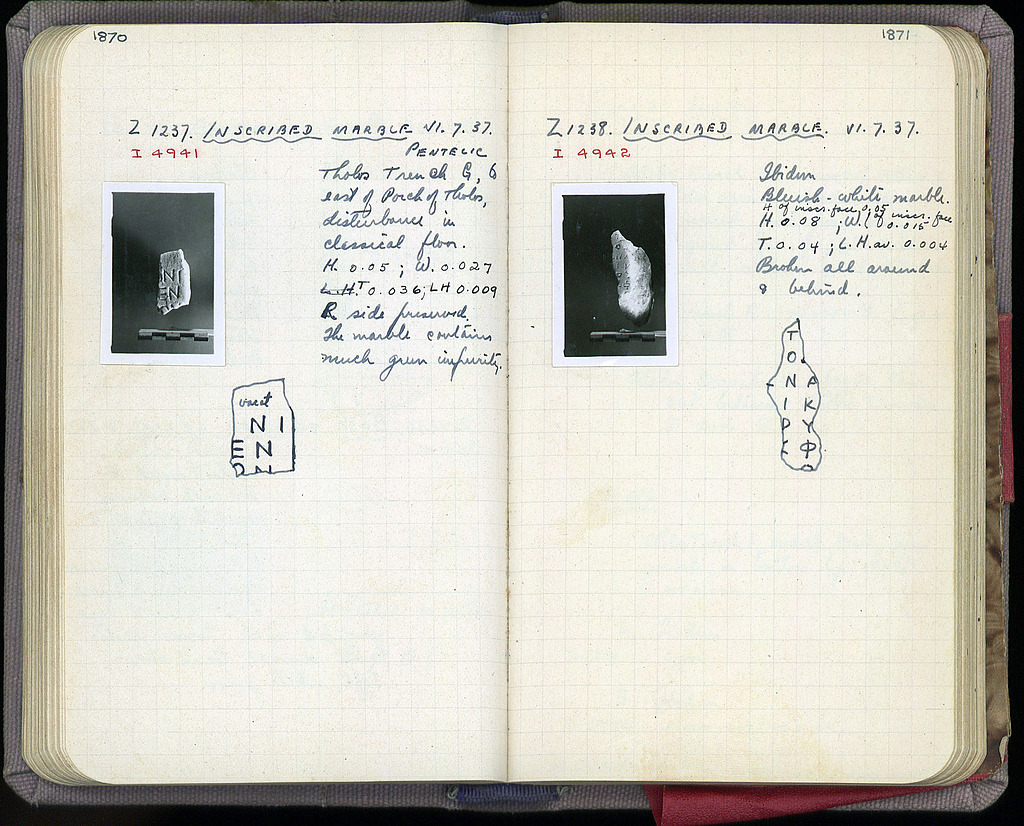 1870
Z 1237. INSCRIBED MARBLE VI. 7. 37.
I 4941
PENTELIC
Tholos Trench G, 6
east of Porch of Tholos,
disturbance in
classical floor.
H. 0.05 ; W. 0.027
L.H. T 0.036; LH 0.009
R side preserved.
The marble contains
much green impurity.
vacat
N I
E N
N
1871
Z 1238. INSCRIBED MARBLE. VI. 7. 37.
I 4942
Ibidum
Bluish-white marble.
H of inscr. face 0.05
H. 0.08 ; W. ( of inscr. face
0.015
T. 0.04 ; L.H. av. 0.004
Broken all around
& behind.
T
O
N A
I K
P Y
Φ